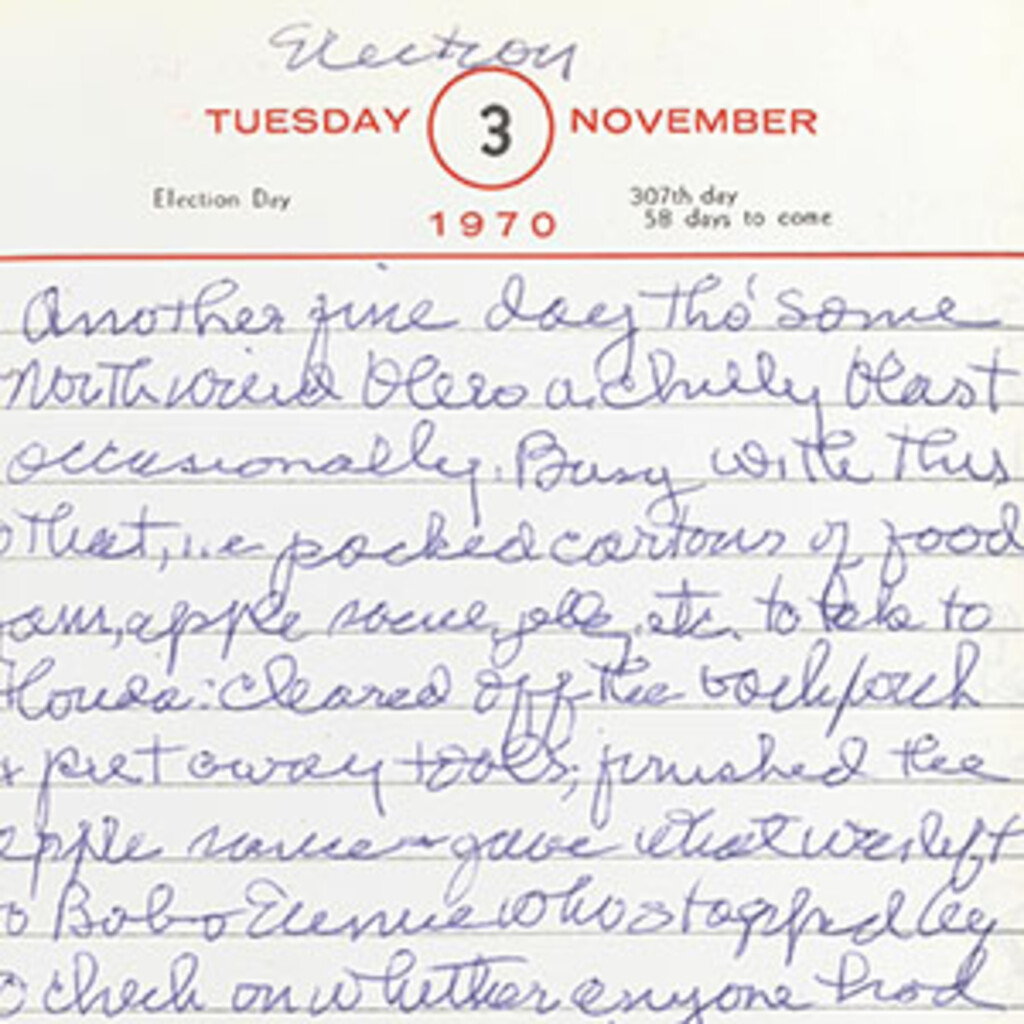 Election
TUESDAY 3 NOVEMBER
Election Day
1970
307th day
58 days to come
Another fine day tho' some
north wind blew a chilly blast
occasionally. Busy with this
& that, i.e. packed cartons of food
jam, apple sauce, jelly, etc. to take to
Florida: cleared off the back porch
& put away tools; finished the
apple sauce & gave what was left
to Bob & Eunice who stopped by
to check on whether anyone had